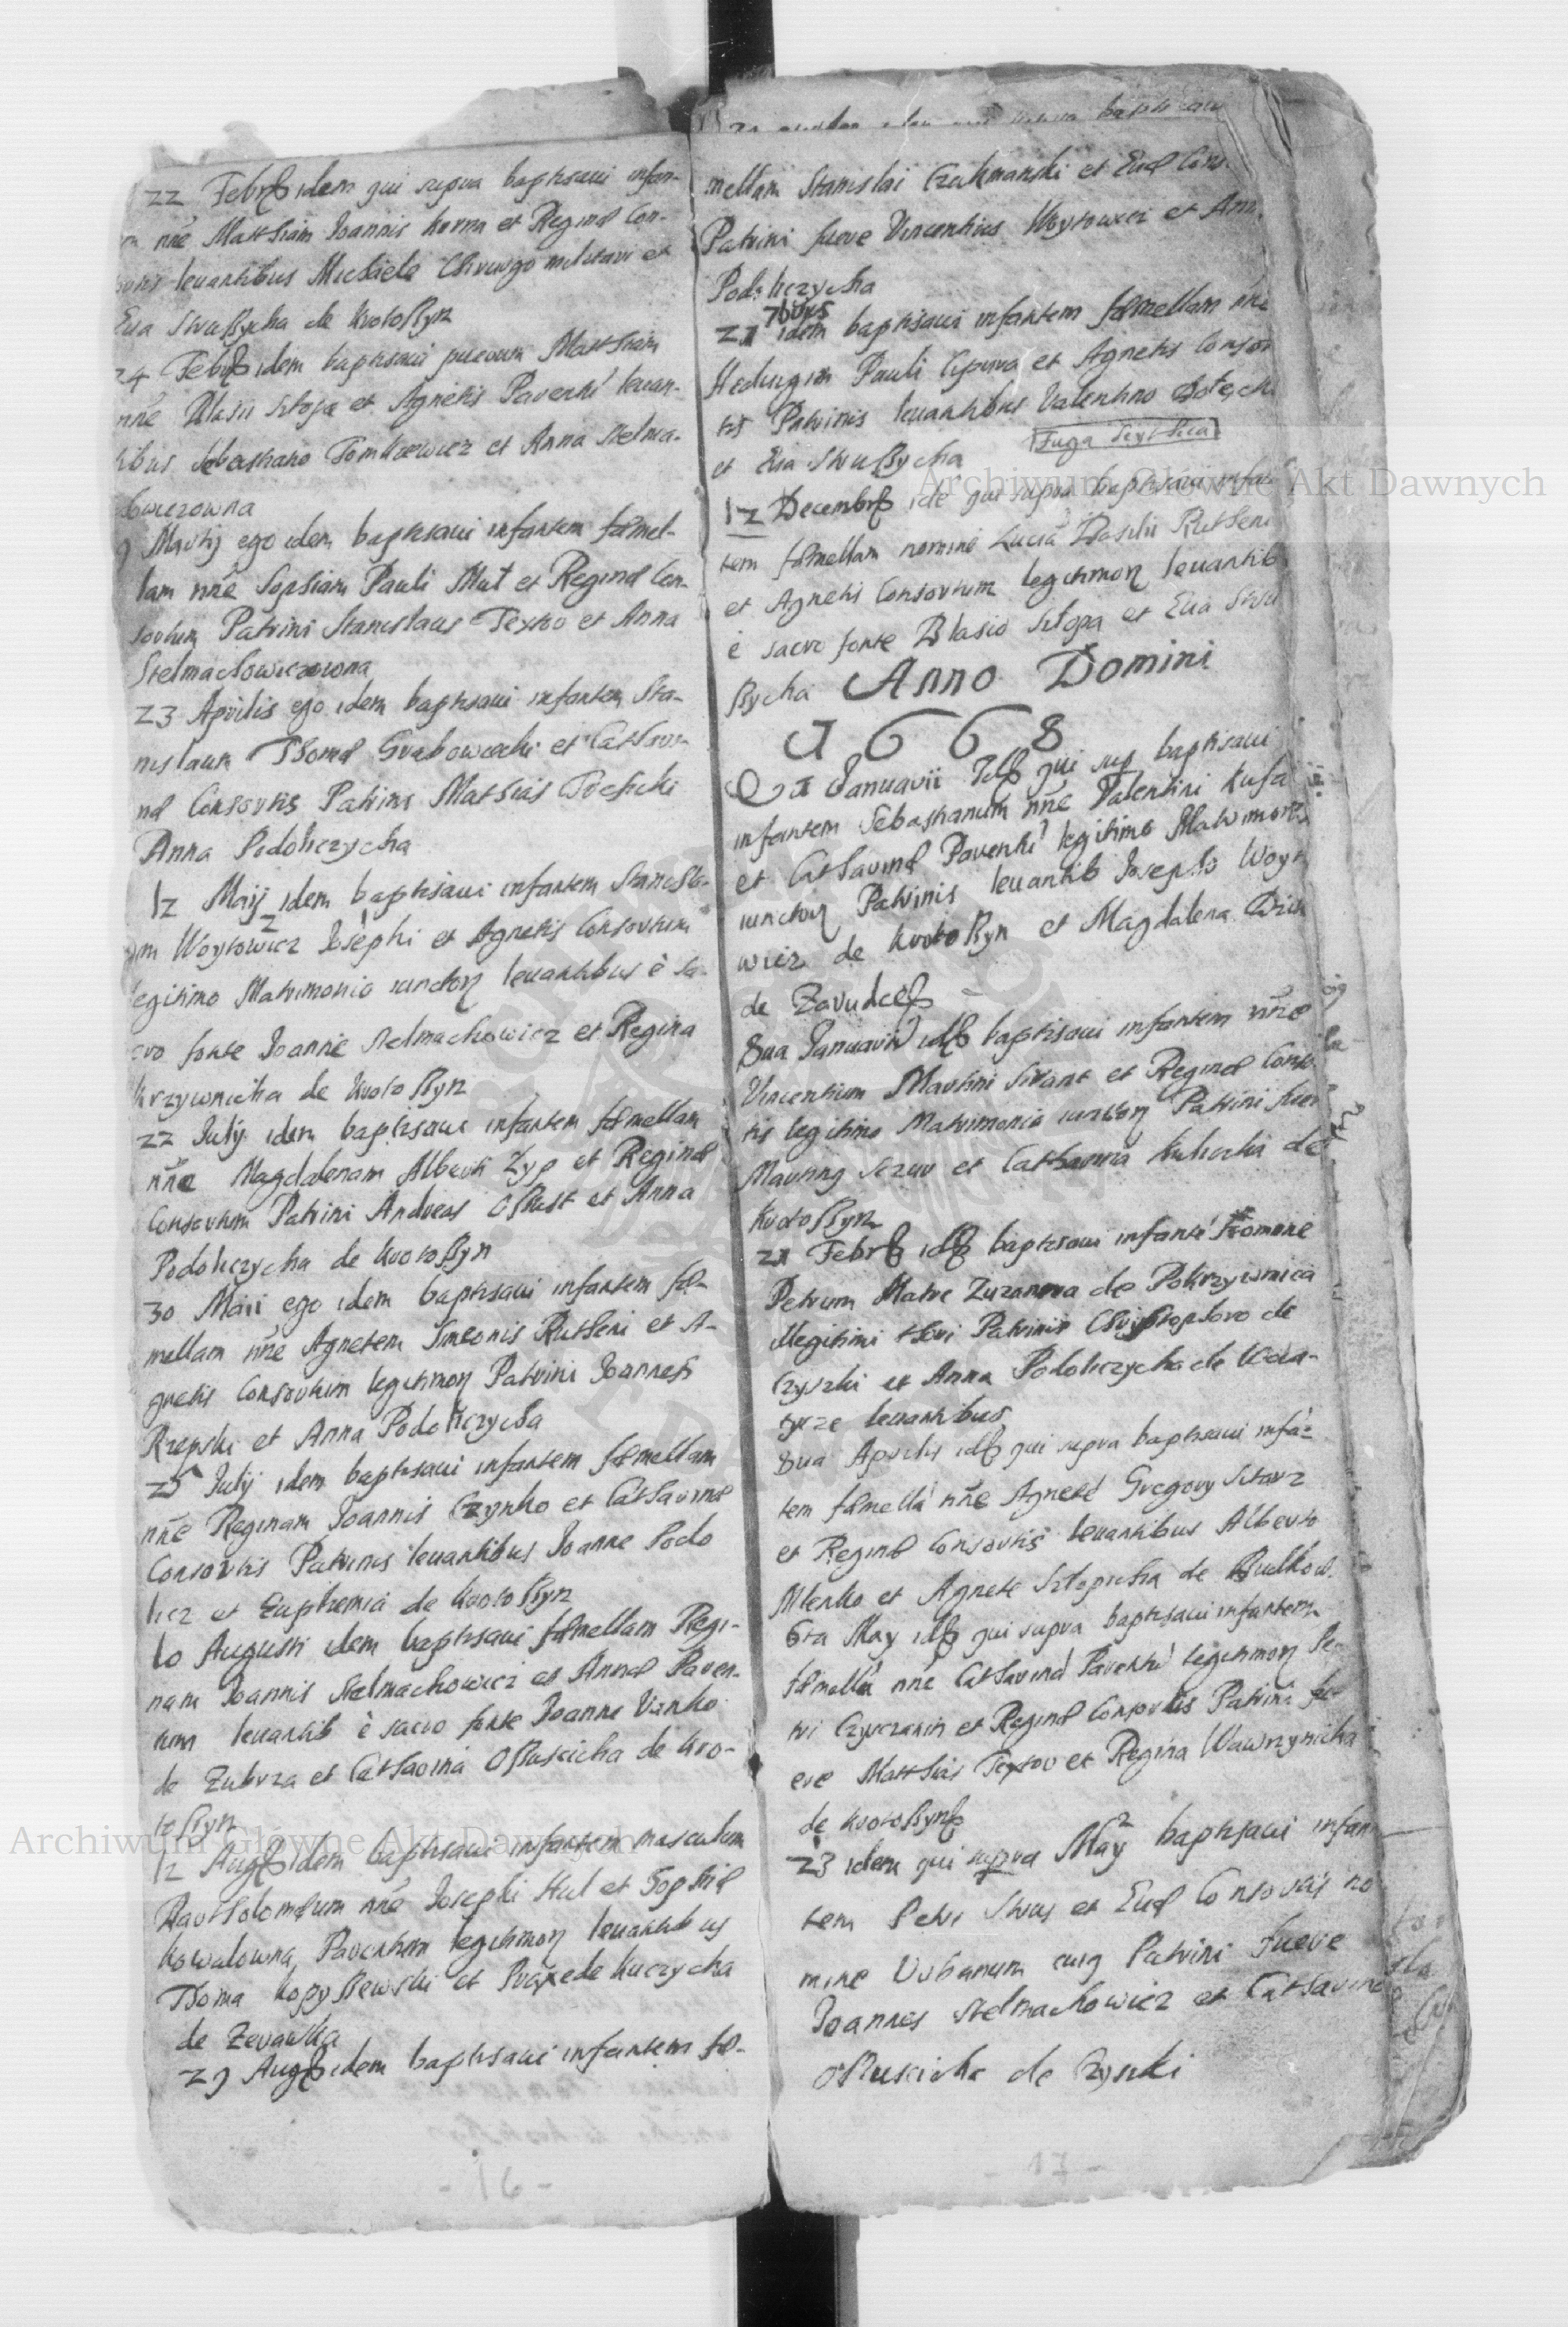 22 Febr. idem qui supra baptisaui infan-
nnē Matthiam Joannis korma et Reginæ Con-
leuantibus Michaele Chirurgo militari et
Eua Strußycha de Krotoßyn
24 Febr. idem baptisaui puerum Matthiam
nnē Blasii Sztopa et Agnetis Parenti leuan-
tibus Sebastiano Tomkiewicz et Anna Stelma-
chowiczowna
9 Martij ego idem baptisaui infantem fœmel-
lam nnē Sophiam Pauli Mut et Reginæ Con-
sortum Patrini Stanislaus Textor et Anna
Stelmachowiczowona
23 Aprilis ego idem baptisaui infantem Sta-
nislaum Thomæ Grabowiecki et Cathari-
næ Consortis Patrini Mathias
Anna Podoliczycha
12 Maij idem baptisaui infantem Stanisla-
um Woytowicz Josephi et Agnetis Consortum
legitimo Matrimonio iunctoꝝ leuantibus è sa-
cro fonte Joanne Stelmachowicz et Regina
krzywnicka de Krotoßyn
22 Julij idem baptisaui infantem fœmellam
nnē Magdalenam Alberti Zyp et Reginæ
Consortum Patrini Andreas Oßust et Anna
Podoliczycha de Krotoßyn
30 Maii ego idem baptisaui infantem fœ-
mellam nnē Agnetem Simeonis Rutheni et A-
gnetis Consortum legitimoꝝ Patrini Joannes
Rzepski et Anna Podoliczycha
25 Julij idem baptisaui infantem fœmellam
nnē Reginam Joannis Czynko et Catharinæ
Consortis Patrinis leuantibus Joanne Podo
licz et Euphemia de Krotoßyn
10 Augusti idem baptisaui fœmellam Regi-
nam Joannis Stelmachowicz et Annæ Paren-
tum leuantib è sacro fonte Joanne Vanko
de Zubrza et Catharina Oßuscicha de Kro-
toßyn
12 Aug. idem baptisaui infantem masculum
Bartholomæum nnē Josephi Hul et Sophiæ
kowalowna, Parentum legitimoꝝ leuantibus
Thoma kopyßewski et Praxede kuczycha
de Zerawka
29 Aug. idem baptisaui infantem fœ-
- 16 -
mellam Stanislai Czukmanski et Euæ Cons
Patrini fuere Vincentius Woytowicz et Ann
Podoliczycha
7bris
21 idem baptisaui infantem fœmellam nne
Hedwigim Pauli Cipura et Agnetis Consor
tis Patrinis leuantibus Valentino
et Eua Strußycha
Fuga Scythica
12 Decembr. idē qui supra baptisaui infan
tem fœmellam nomine Luciā Basilii Rutheni
et Agnetis Consortum legitimoꝝ leuantib
è sacro fonte Blasio Sztopa et Eua Stru
ßycha Anno Domini
1668
Januarii qui sup baptisaui
infantem Sebastianum nnē Valentini Kusa
et Catharinæ Parenti legitimo Matrimon
iunctoꝝ Patrinis leuantib Josepho Woyt
wicz de Krotoßyn et Magdalena
de Zarudce
8ua Januarii id. baptisaui infantem nnē
Vincentium Martini Sirant et Reginæ Conso
tis legitimo Matrimonio iunctoꝝ Patrini fuer
Martinꝰ Sczur et Catharina kulicka de
Krotoßyn
21 Febr. id. baptisaui infantē nomine
Petrum Matre Zuzanna de Pokrzywnica
illegitimi thori Patrinis Christophoro de
Czyszki et Anna Podoliczycha de
leuantibus
8ua Aprilis id. qui supra baptisaui infā-
tem fœmellā nnē Agnetē Gregory Sitarz
et Reginæ Consortis leuantibus Alberto
Mlenko et Agnete Sztopicha de
6ta May id. qui supra baptisaui infantem
fœmellā nnē Catharinā Parenti legitimoꝝ Pe
tri Czyczanin et Reginæ Consortis Patrini fu-
ere Matthias Textor et Regina Wawrzynicha
de Krotoßyn
23 idem qui supra May baptisaui infan
tem Petri Strus et Euæ Consortis no
mine Vrbanum cuiꝰ Patrini fuere
Joannes Stelmachowicz et Catharina
Oßuscicha de Czyszki
- 17 -
Archiwum Główne Akt Dawnych
Archiwum Główne Akt Dawnych